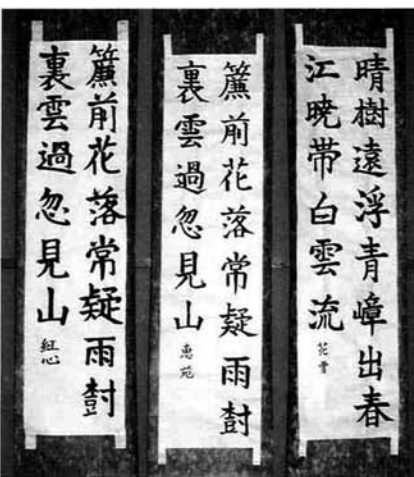 晴樹遠浮青嶂出春
江暁帯白雲流
簾前花落常疑雨尌
裏雲過忽見山 恵苑
簾前花落常疑雨尌
裏雲過忽見山 紅心